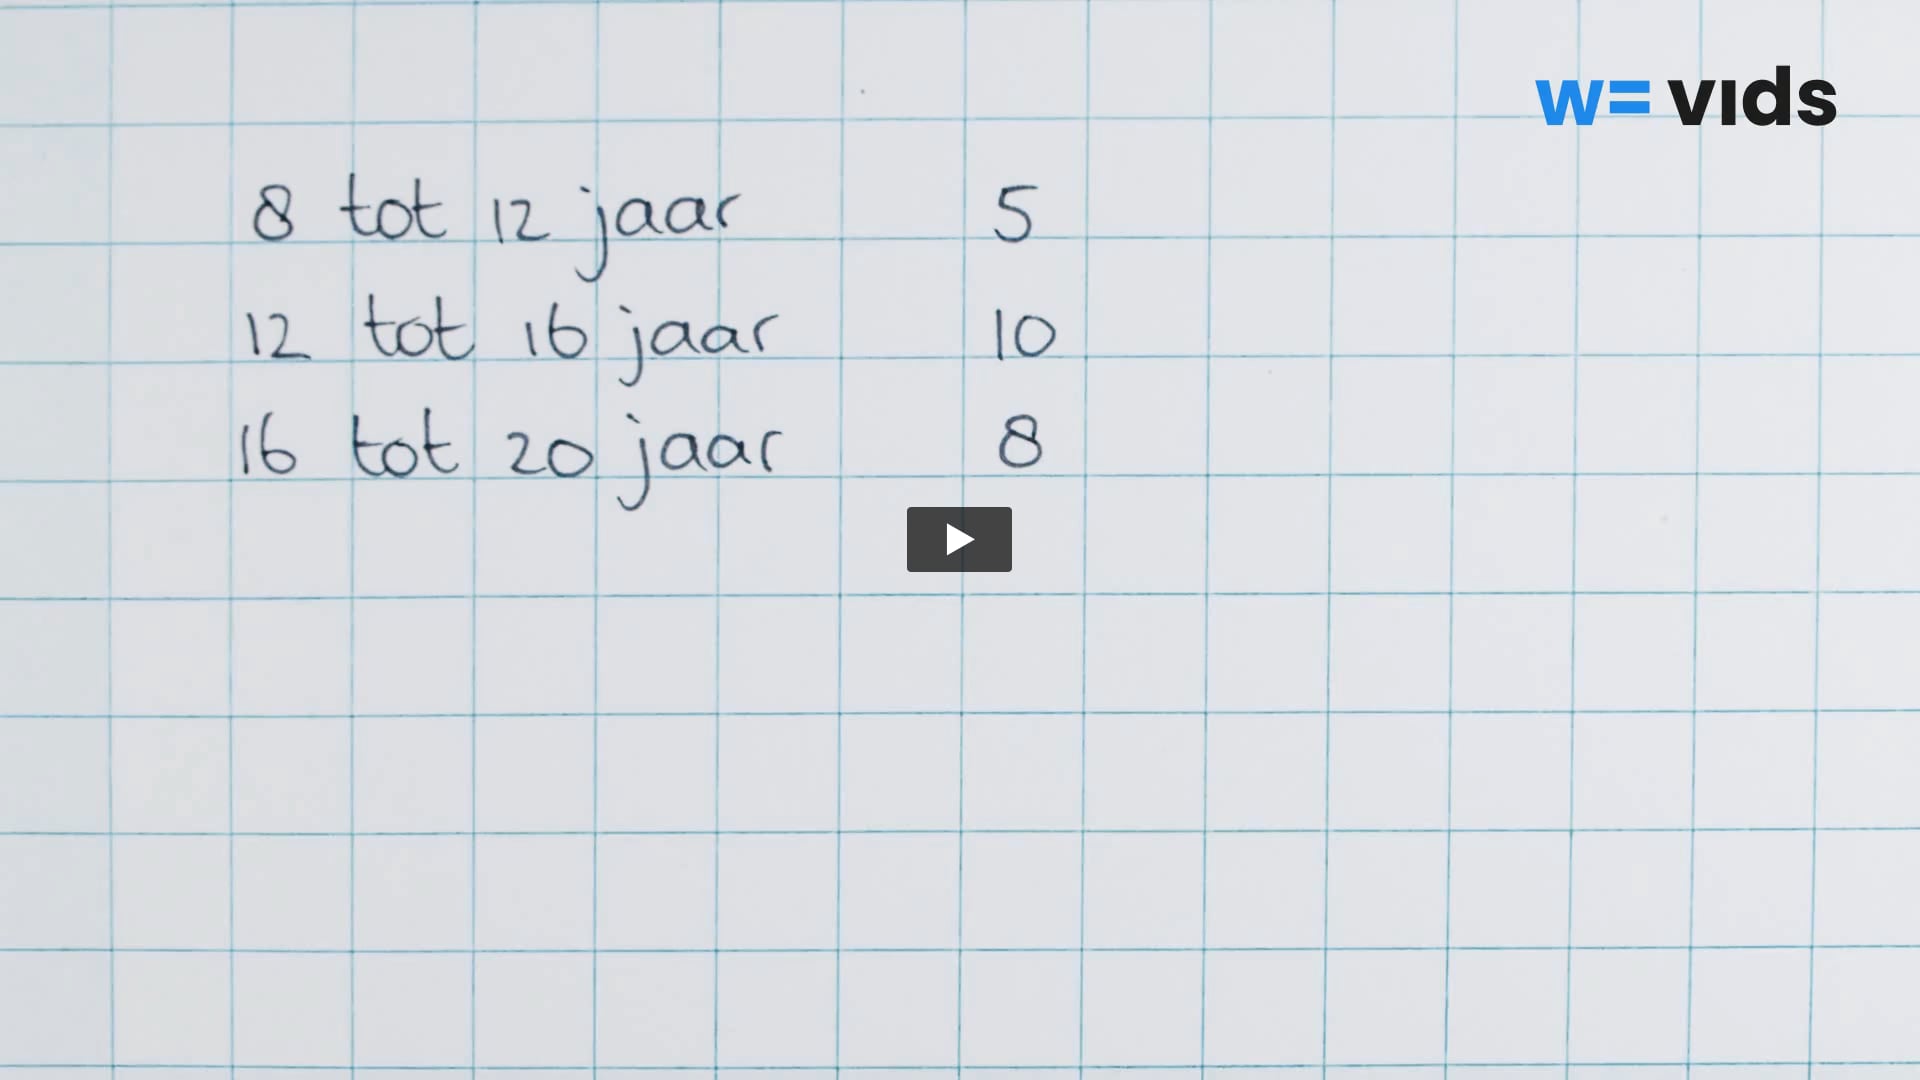 w= vids
8 tot 12 jaar 5
12 tot 16 jaar 10
16 tot 20 jaar 8